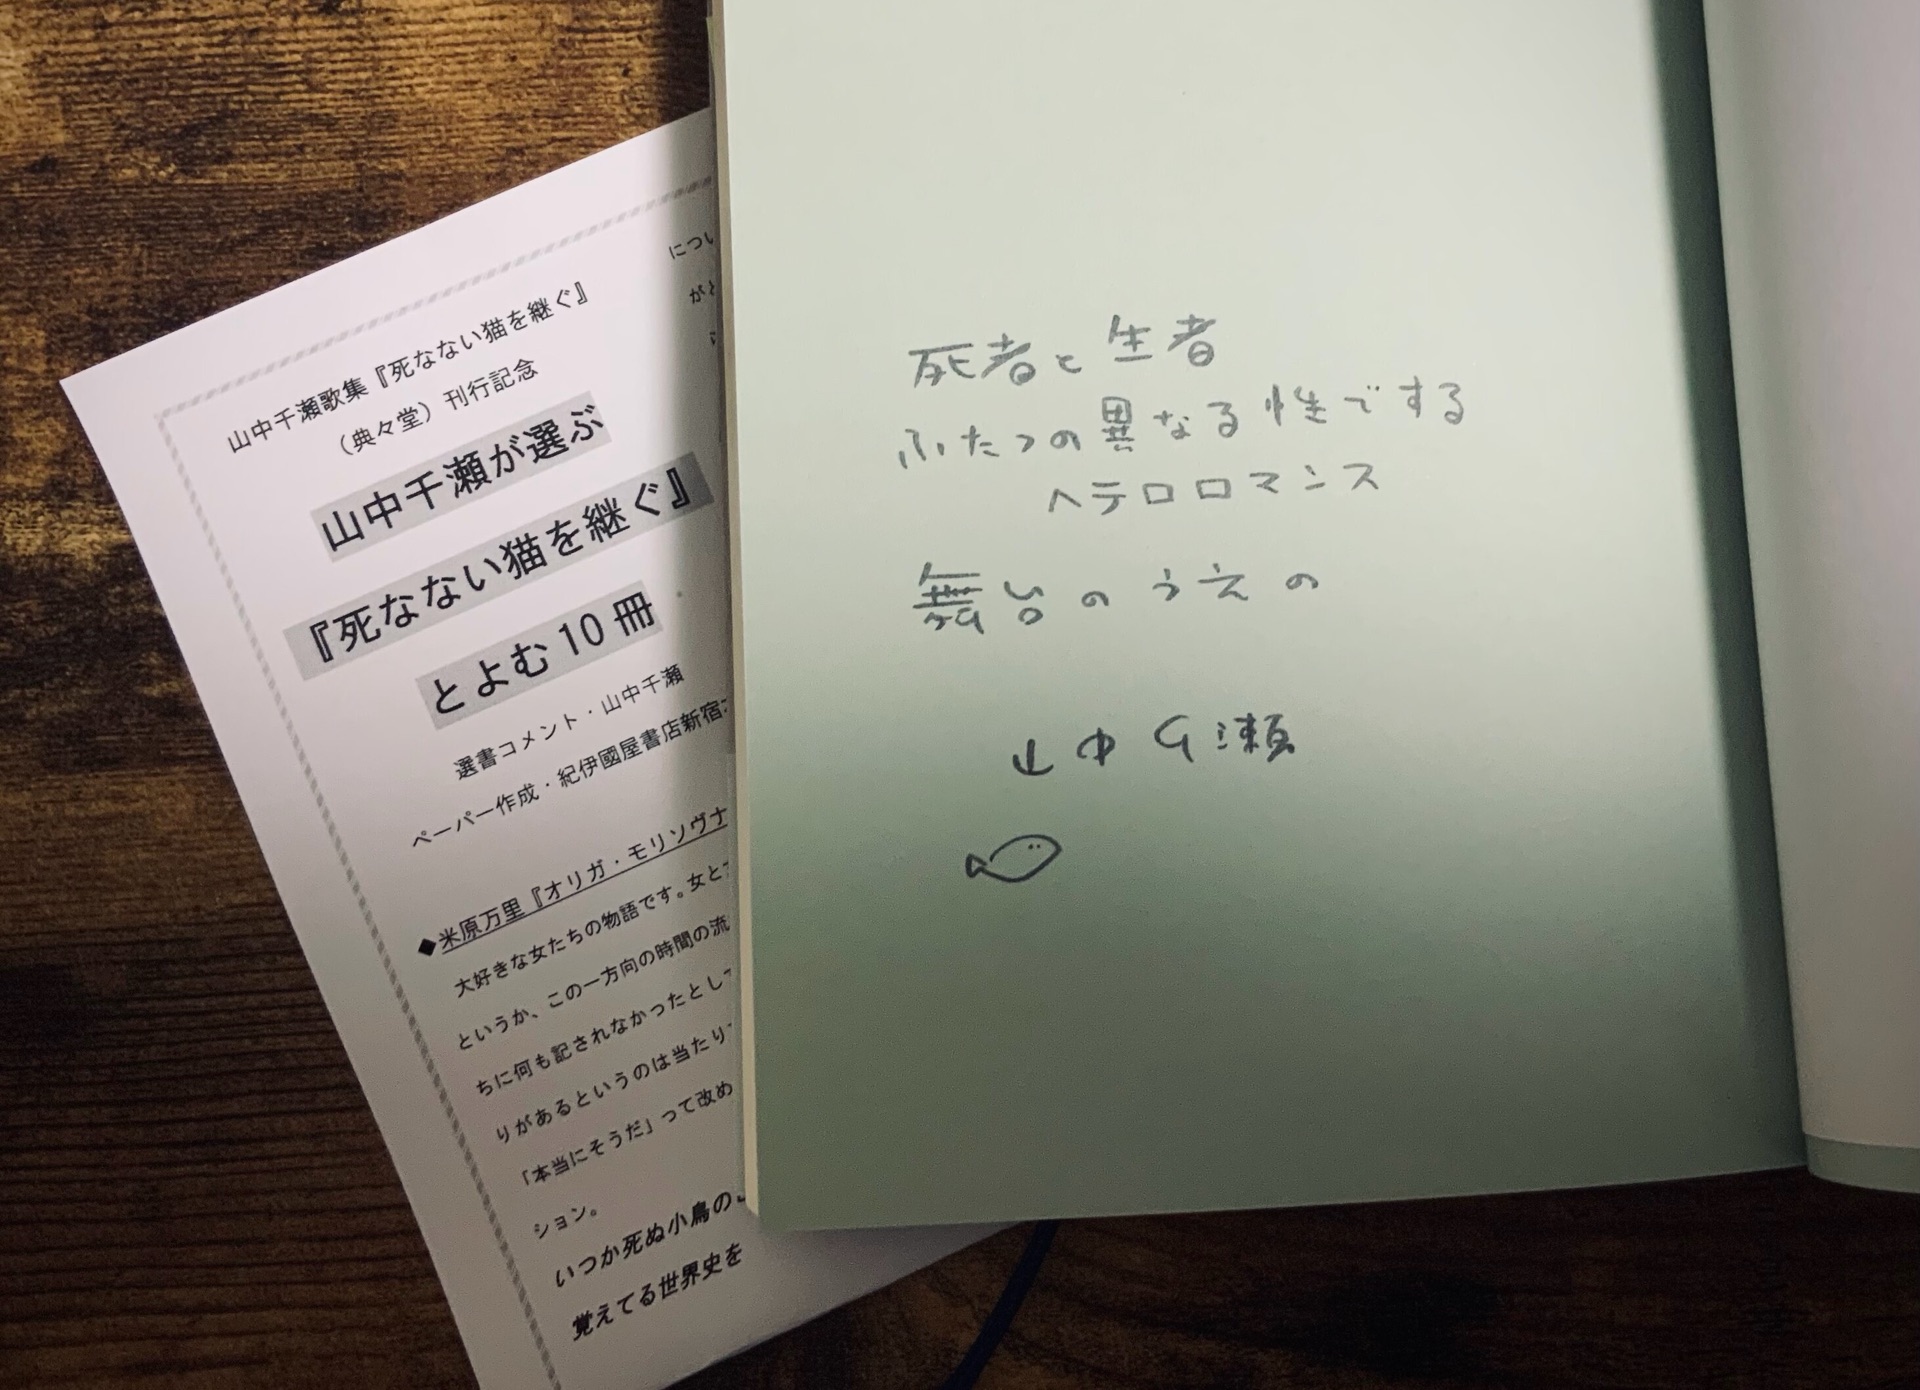 山中千瀬歌集『死なない猫を継ぐ』
(典々堂)刊行記念
山中千瀬が選ぶ
『死なない猫を継ぐ』
とよむ10冊
選書コメント・山中千瀬
ペーパー作成・紀伊國屋書店新宿
◆米原万里『オリガ・モリソヴナ
大好きな女たちの物語です。女と
というか、この一方向の時間の流
ちに何も記されなかったとして
りがあるというのは当たり
「本当にそうだ」って改め
ション。
いつか死ぬ小鳥の
覚えてる世界史を
につい
が
死者と生者
ふたつの異なる性でする
ヘテロロマンス
舞台のうえの
山中千瀬